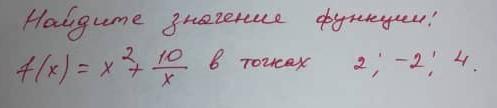 Найдите значение функции!
f(x) = x² + 10/x в точках 2; -2; 4.